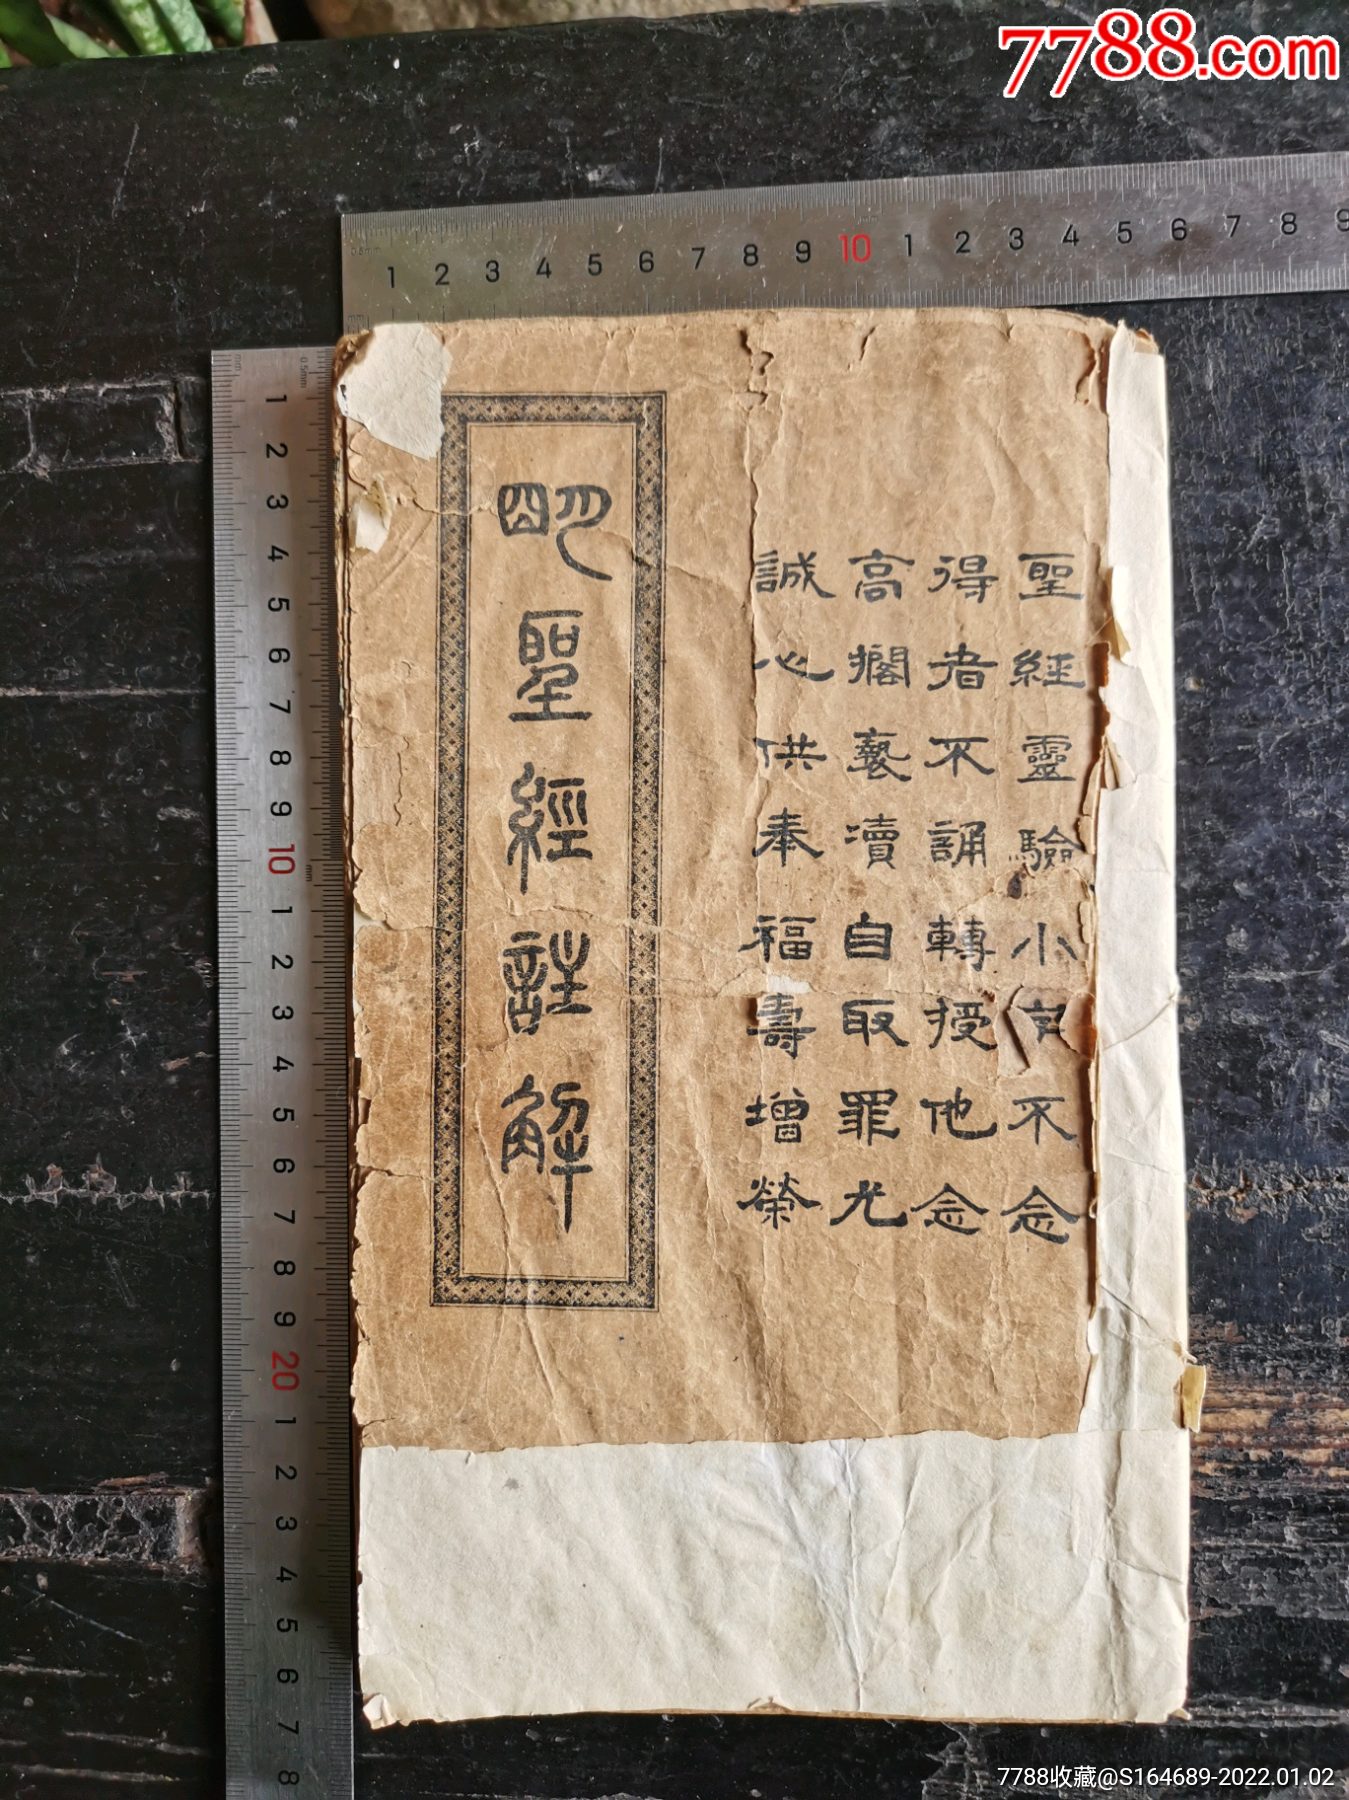 7788.com
0.5mm
1 2 3 4 5 6 7 8 9 10 1 2 3 4 5 6 7 8 9
mm
0.5mm
1 2 3 4 5 6 7 8 9 10 1 2 3 4 5 6 7 8 9 20 1 2 3 4 5 6 7 8
聖經靈驗小字不念
得者不誦轉授他念
高擱褻瀆自取罪尤
誠心供奉福壽增榮
朙聖經註解
7788收藏@S164689-2022.01.02